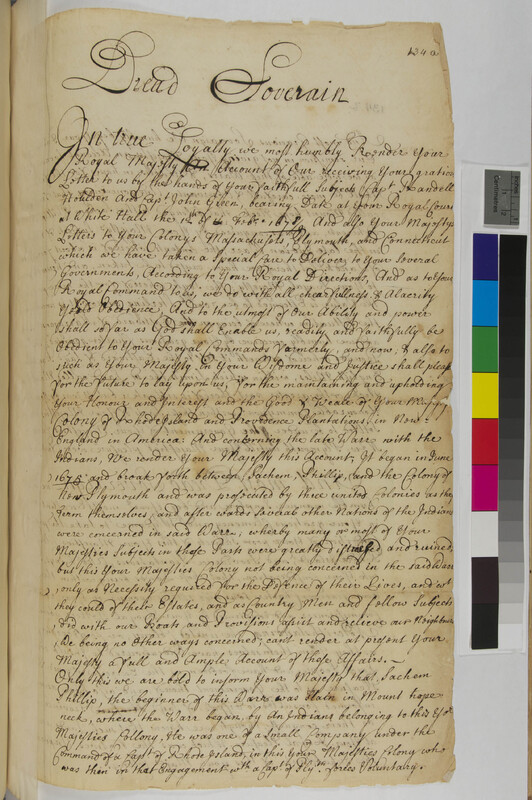 1340
Dread Soverain
In true Loyalty we most humbly Render Your
Royal Majesty an Account of Our receiving Your gratious
Letter to us by the hands of Your faithfull Subjects Capt Randell
Houlden And Capt John Green, bearing Date at Your Royal Court
at White Hall the of Febr. 1678, And also Your Majestys
Letters to Your Colonys Massachusets, Plymouth, and Connecticut
which we have taken a Special Care to Deliver, to Your Several
Governments, According to Your Royal Directions, And as to Your
Royal Command to us, we do with all chearfullness & Alacrity
Yeild Obedience And to the utmost of Our Ability and power
shall so far as God shall Enable us, readily and faithfully be
Obedient to Your Royal Commands formerly, and now, & also to
such as Your Majesty in Your Wisdome and Justice shall please
for the future to lay upon us, for the maintaining and upholding
Your Honour and Interest and the Good & Weale of Your Majstys
Colony of Rhode Island and Providence Plantations, in New
England in America: And concerning the late Warr with the
Indians, We render Your Majesty this Account; It began in June
1675 and broak forth between Sachem Phillip, and the Colony of
New Plymouth and was prosecuted by three united Colonies as they
term themselves, and after wards Several other Nations of the Indians
were concerned in said Warr, wherby many or most of Your
Majesties Subjects in these Parts were greatly distressed and ruined,
but this Your Majesties Colony not being concerned in the said Warr
only as Necessity required for the Defence of their Lives, and wt
they could of their Estates, and as Country Men and fellow Subjects
Did with our Boats and Provisions assist and relieve our Neighburs
We being no Other ways concerned; cant render at present Your
Majesty a full and Ample Account of those Affairs.
Only this we are bold to inform Your Majesty that Sachem
Phillip, the beginner of this Warr was slain in Mount hope
neck, where the Warr began, by an Indians belonging to this Your
Majesties Collony, He was one of a Small Company under the
Command of a Capt of Rhode Island, in this Your Majesties Colony who
was then in that Engagement wth a Capt of Plyth forces Voluntary.